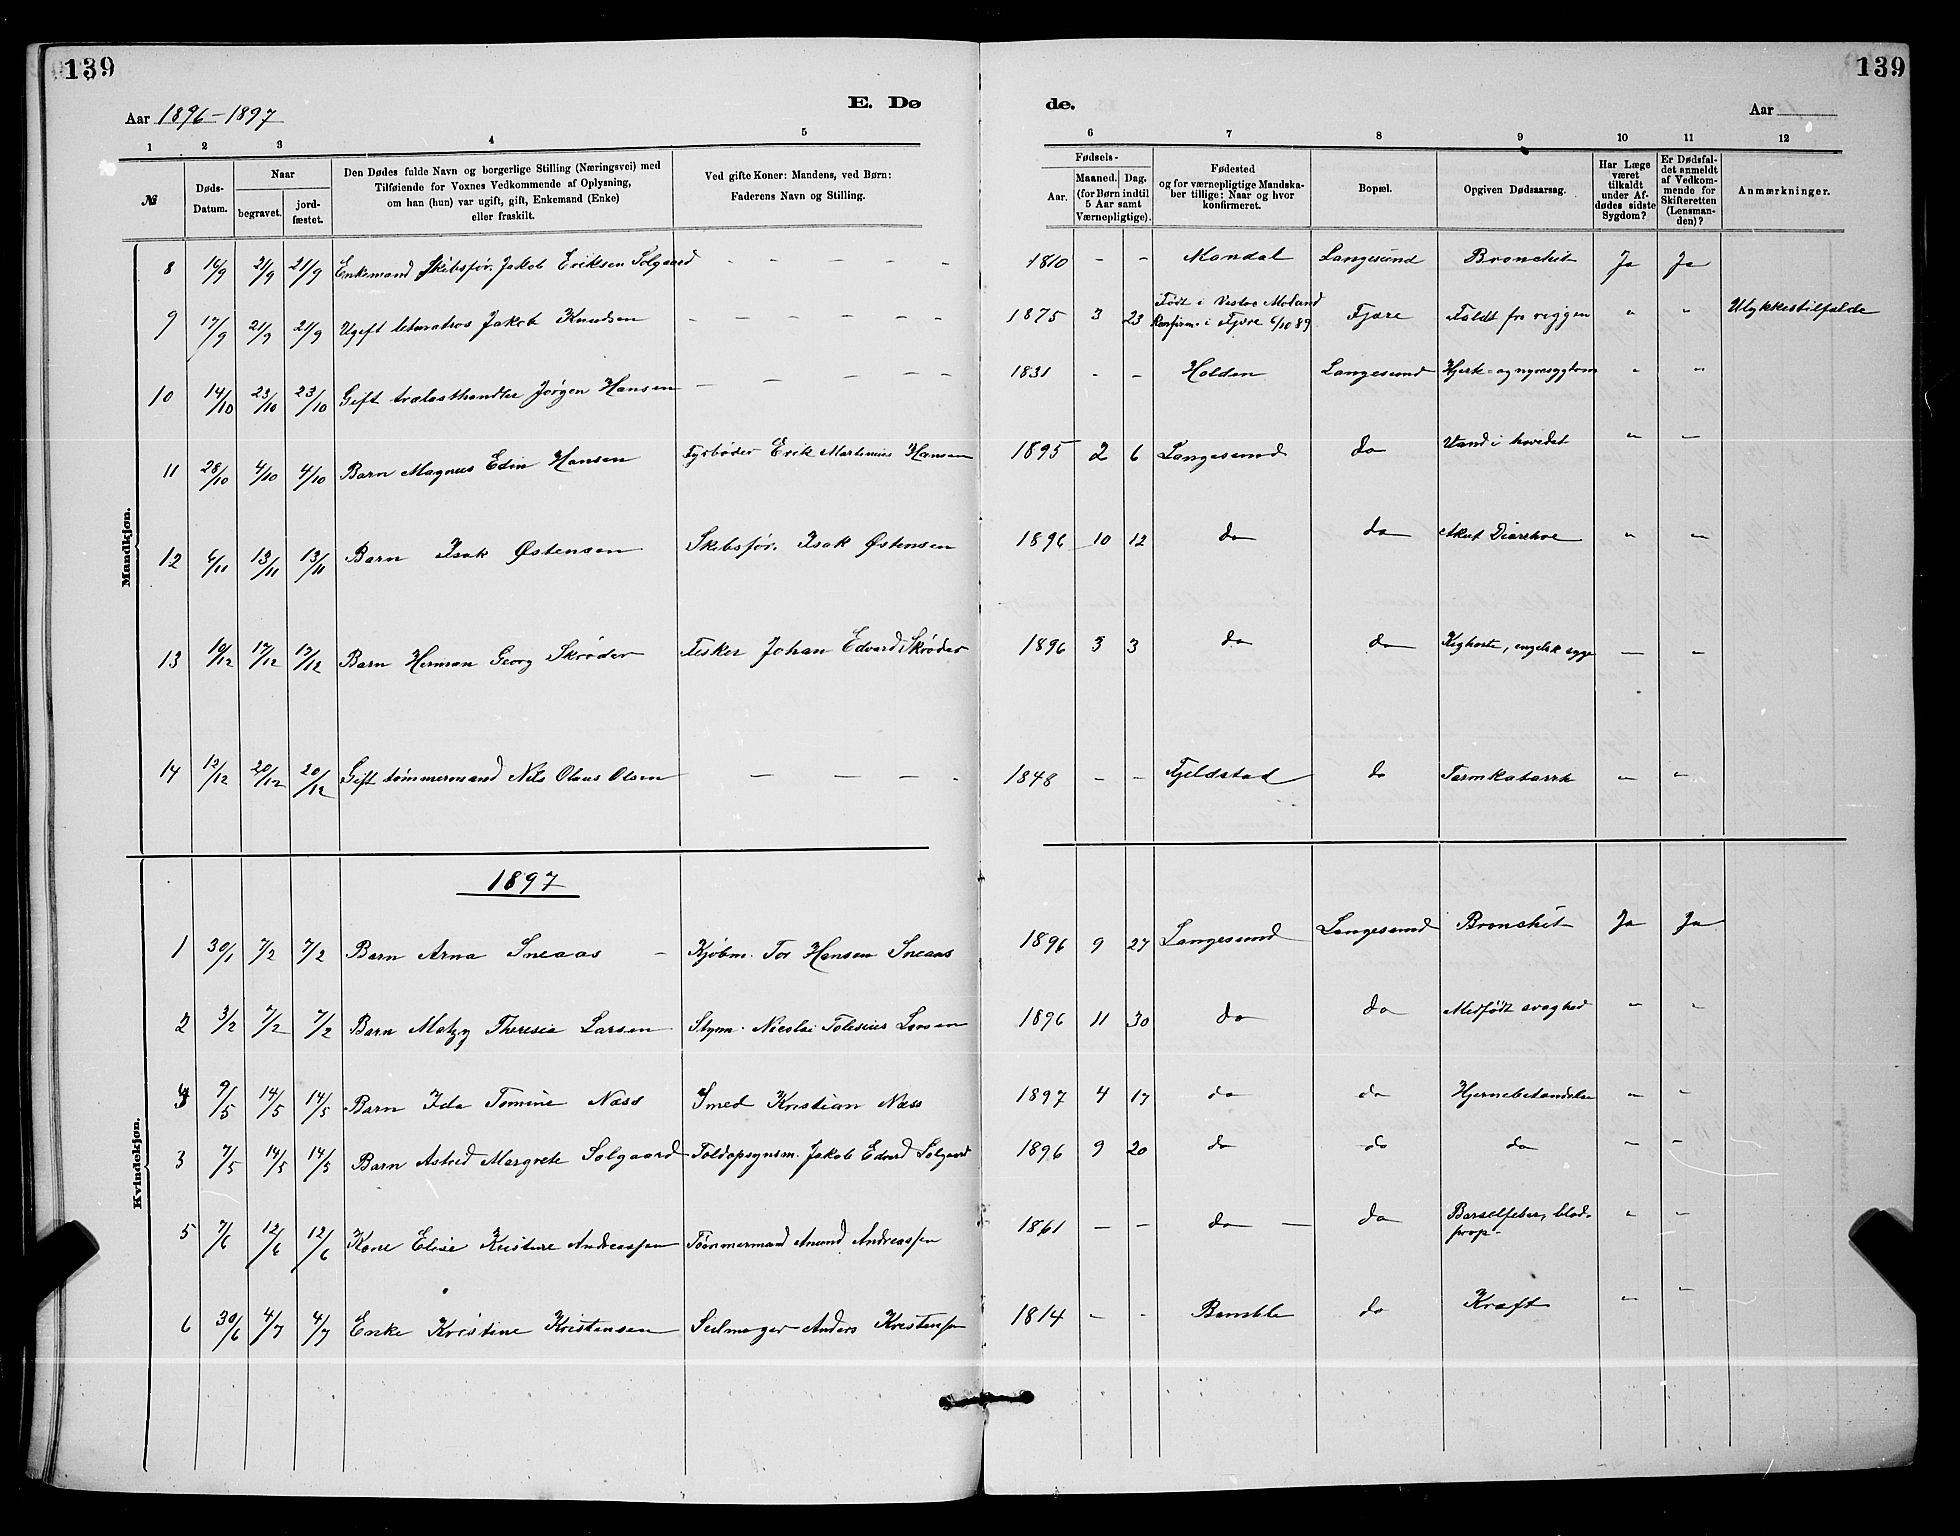 139
139
Aar 1896-1897
E. Dø
de.
Aar
1 2 3 4 5 6 7 8 9 10 11 12
№
Døds-Datum.
Naar
begravet.
jordfæstet.
Den Dødes fulde Navn og borgerlige Stilling (Næringsvei) med
Tilføiende for Voxnes Vedkommende af Oplysning,
om han (hun) var ugift, gift, Enkemand (Enke)
eller fraskilt.
Ved gifte Koner: Mandens, ved Børn:
Faderens Navn og Stilling.
Fødsels-
Aar.
Maaned. Dag.
(for Børn indtil
5 Aar samt
Værnepligtige).
Fødested
og for værnepligtige Mandskaber tillige: Naar og hvor
konfirmeret.
Bopæl.
Opgiven Dødsaarsag.
Har Læge
været
tilkaldt
under Afdødes sidste
Sygdom?
Er Dødsfaldet anmeldt
af Vedkommende for
Skifteretten
(Lensmanden)?
Anmærkninger.
Mandkjøn.
8 16/9 21/9 21/9 Enkemand Skibsfør. Jakob Eriksen Solgaard - - - - - 1810 - - Mandal Langesund Bronchit Ja Ja
9 17/9 21/9 21/9 Ugift letmatros Jakob Knudsen - - - - - - 1875 3 23 Født i Vestre Moland
Konfirm. i Fjære 6/10 89 Fjære Faldt fra riggen " " Ulykkestilfælde
10 14/10 23/10 23/10 Gift trælasthandler Jørgen Hansen - - - - - 1831 - - Holden Langesund Hjerte- og nyresygdom " "
11 28/10 4/10 4/10 Barn Magnus Edin Hansen Fyrbøder Erik Martinius Hansen 1895 2 6 Langesund do Vand i hovedet " "
12 6/11 13/11 13/11 Barn Isak Østensen Skibsfør. Isak Østensen 1896 10 12 do do Akut Diarrhoe " "
13 10/12 17/12 17/12 Barn Herman Georg Skrøder Fisker Johan Edvard Skrøder 1896 3 3 do do Kighoste, engelsk syge " "
14 12/12 20/12 20/12 Gift tømmermand Nils Olaus Olsen - - - - 1848 - - Fjeldstad do Tarmkatarrh " "
1897
Kvindekjøn.
1 30/1 7/2 7/2 Barn Arna Sneaas - Kjøbm. Tor Hansen Sneaas 1896 9 27 Langesund Langesund Bronchit Ja Ja
2 3/2 7/2 7/2 Barn Theresia Larsen Styrm. Nicolai Larsen 1896 11 30 do do Medfødt svaghed " "
4 9/5 14/5 14/5 Barn Ida Tomine Næss Smed Kristian Næss 1897 4 17 do do Hjernebetændelse " "
3 7/5 14/5 14/5 Barn Astrid Margrete Solgaard Toldopsynsm. Jakob Edvard Solgaard 1896 9 20 do do do " "
5 7/6 12/6 12/6 Kone Elise Kristine Andreassen Tømmermand Amund Andreassen 1861 - - do - do Barselfeber, blodprop. " "
6 30/6 4/7 4/7 Enke Kristine Kristensen Seilmager Anders Kristensen 1814 - - Bamble do Kræft " "